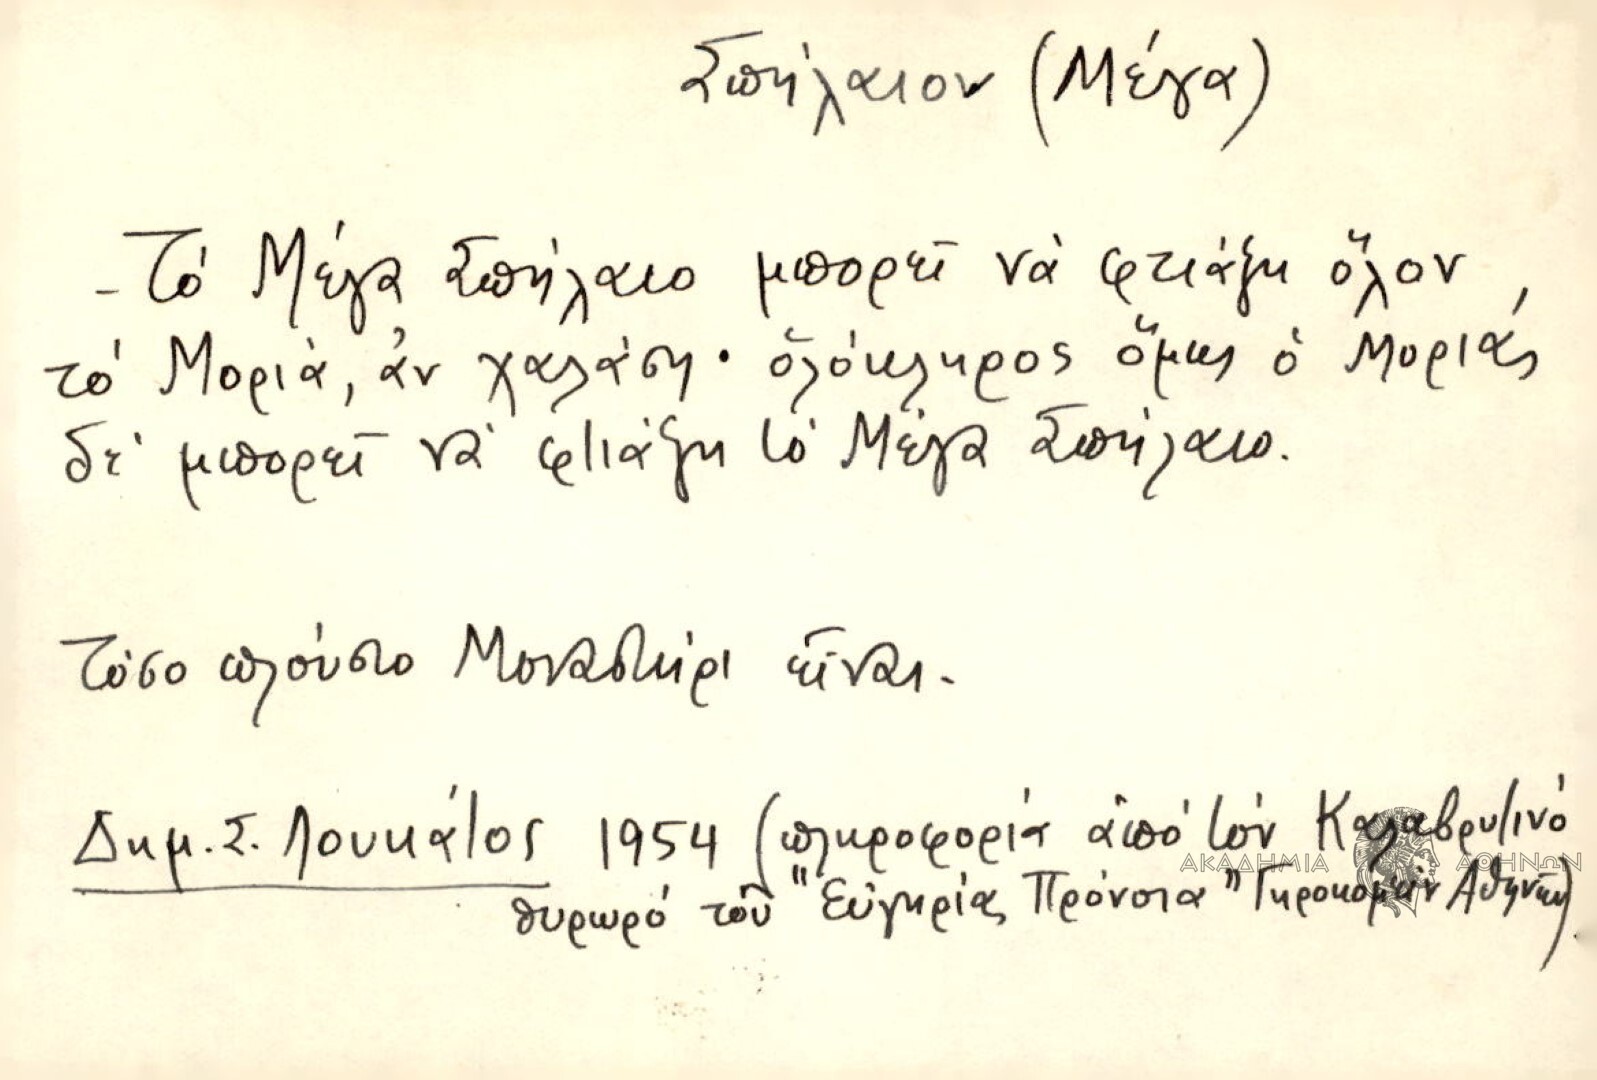 Σπήλαιον (Μέγα)
- Τό Μέγα Σπήλαιο μπορεῖ νὰ φτιάξη ὅλον
τό Μοριὰ, ἄν χαλάση· ὁλόκληρος ὅμως ὁ Μοριάς,
δέ μπορεῖ νά φτιάξη τό Μέγα Σπήλαιο.
Τόσο πλούσιο Μοναστήρι εἶναι.
Δημ. Σ. Λουκάτος 1954 (πληροφορία ἀπό τόν Καλαβρυτινό
θυρωρό τοῦ "Εὐγηρίας Πρόνοια" Γηροκομείου Ἀθηνῶν)
ΑΚΑΔΗΜΙΑ ΑΘΗΝΩΝ